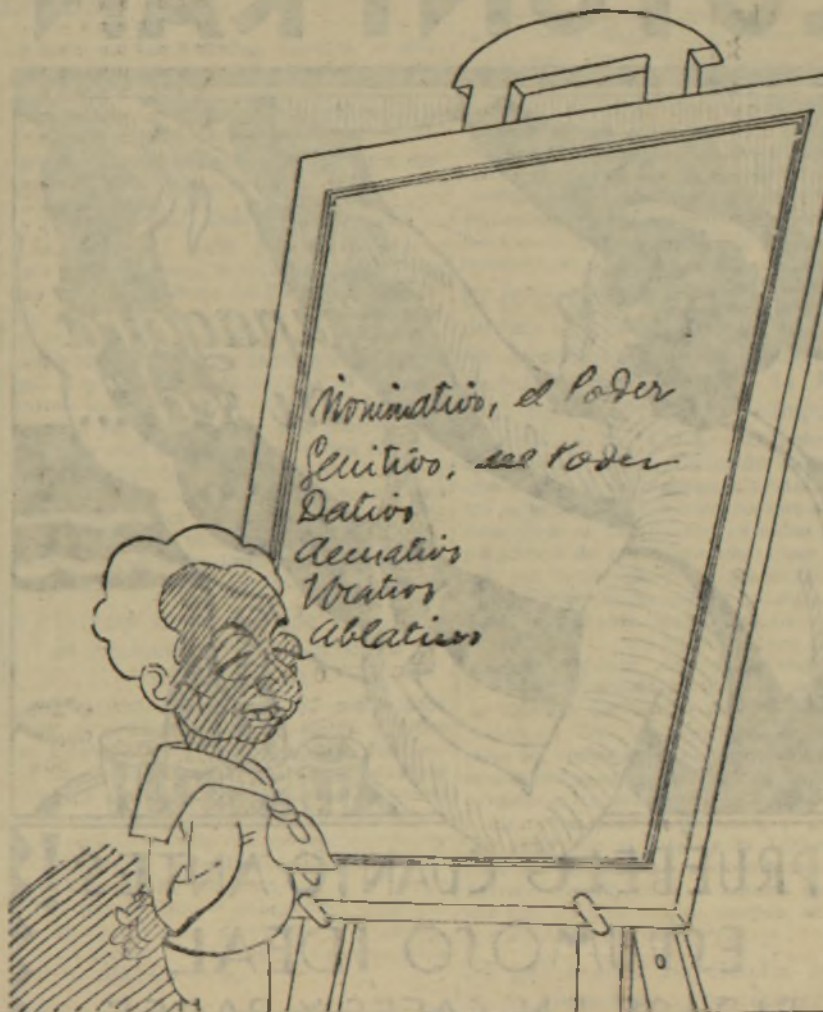 Nominativo, el Poder
Genitivo, del Poder
Dativo
Acusativo
Vocativo
Ablativo